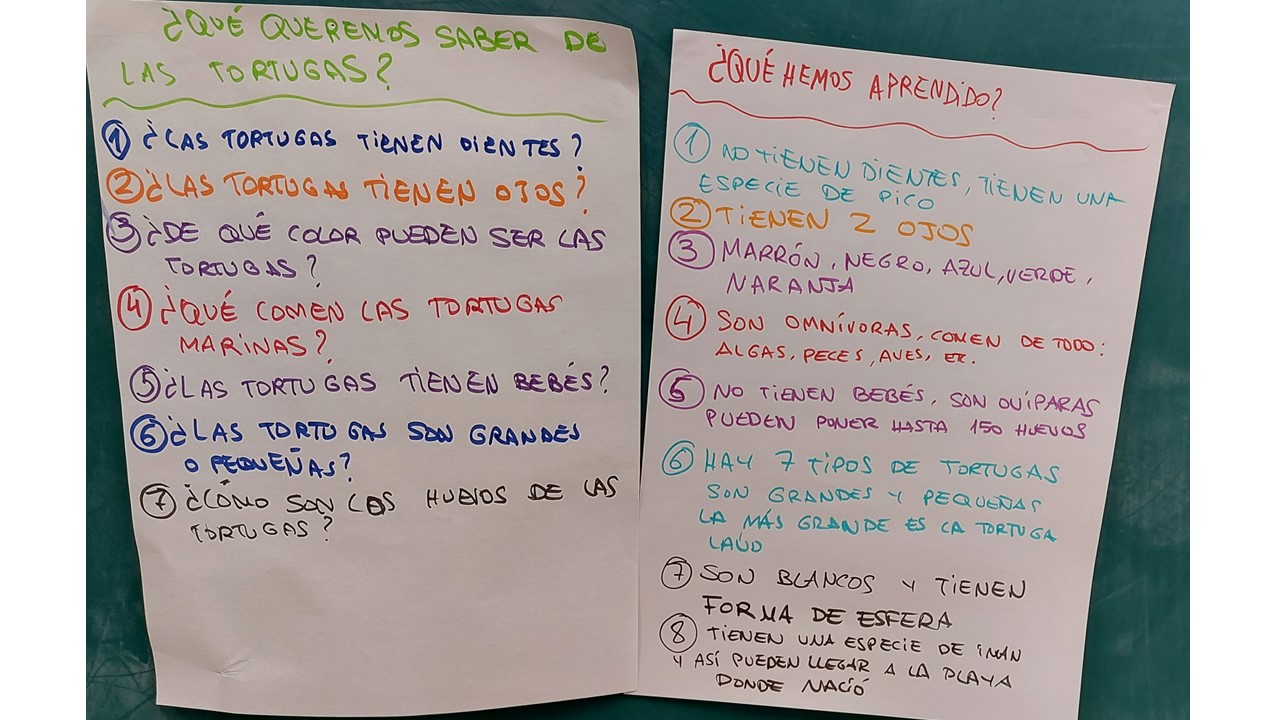 ¿QUÉ QUEREMOS SABER DE
LAS TORTUGAS?
① ¿LAS TORTUGAS TIENEN DIENTES?
② ¿LAS TORTUGAS TIENEN OJOS?
③ ¿DE QUÉ COLOR PUEDEN SER LAS
TORTUGAS?
④ ¿QUÉ COMEN LAS TORTUGAS
MARINAS?
⑤ ¿LAS TORTUGAS TIENEN BEBÉS?
⑥ ¿LAS TORTUGAS SON GRANDES
O PEQUEÑAS?
⑦ ¿CÓMO SON LOS HUEVOS DE LAS
TORTUGAS?
¿QUÉ HEMOS APRENDIDO?
① NO TIENEN DIENTES, TIENEN UNA
ESPECIE DE PICO
② TIENEN 2 OJOS
③ MARRÓN, NEGRO, AZUL, VERDE,
NARANJA
④ SON OMNÍVORAS, COMEN DE TODO:
ALGAS, PECES, AVES, ETC.
⑤ NO TIENEN BEBÉS, SON OVÍPARAS
PUEDEN PONER HASTA 150 HUEVOS
⑥ HAY 7 TIPOS DE TORTUGAS
SON GRANDES Y PEQUEÑAS
LA MÁS GRANDE ES LA TORTUGA
LAÚD
⑦ SON BLANCOS Y TIENEN
FORMA DE ESFERA
⑧ TIENEN UNA ESPECIE DE IMÁN
Y ASÍ PUEDEN LLEGAR A LA PLAYA
DONDE NACIÓ